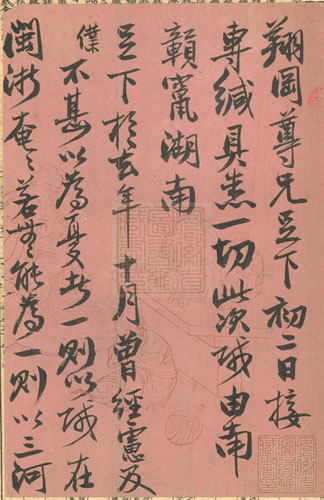 翔岡尊兄足下初二日接
專緘具悉一切此次賊由南
贛竄湖南
足下於去年十月曾經慮及
僕不甚以為憂者一則以賊在
閩浙奄奄若無能為一則以三河